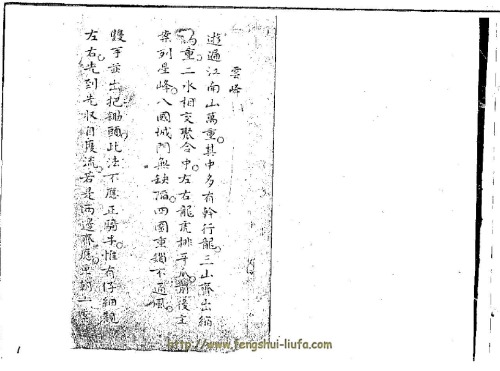 雲峰
遊遍江南山萬重。其中多有幹行龍。三山齊出緺
重。二水相交聚合中。左右龍虎排牙爪。前後主
案列星峰。八國城門無缺陷。四圍重鎖不通風。
雙手並出把鋤頭。此法不應正騎牛。惟有仔細觀
左右。先到先收自應流。若是兩邊齊應
http://www.fengshui-liufa.com
1